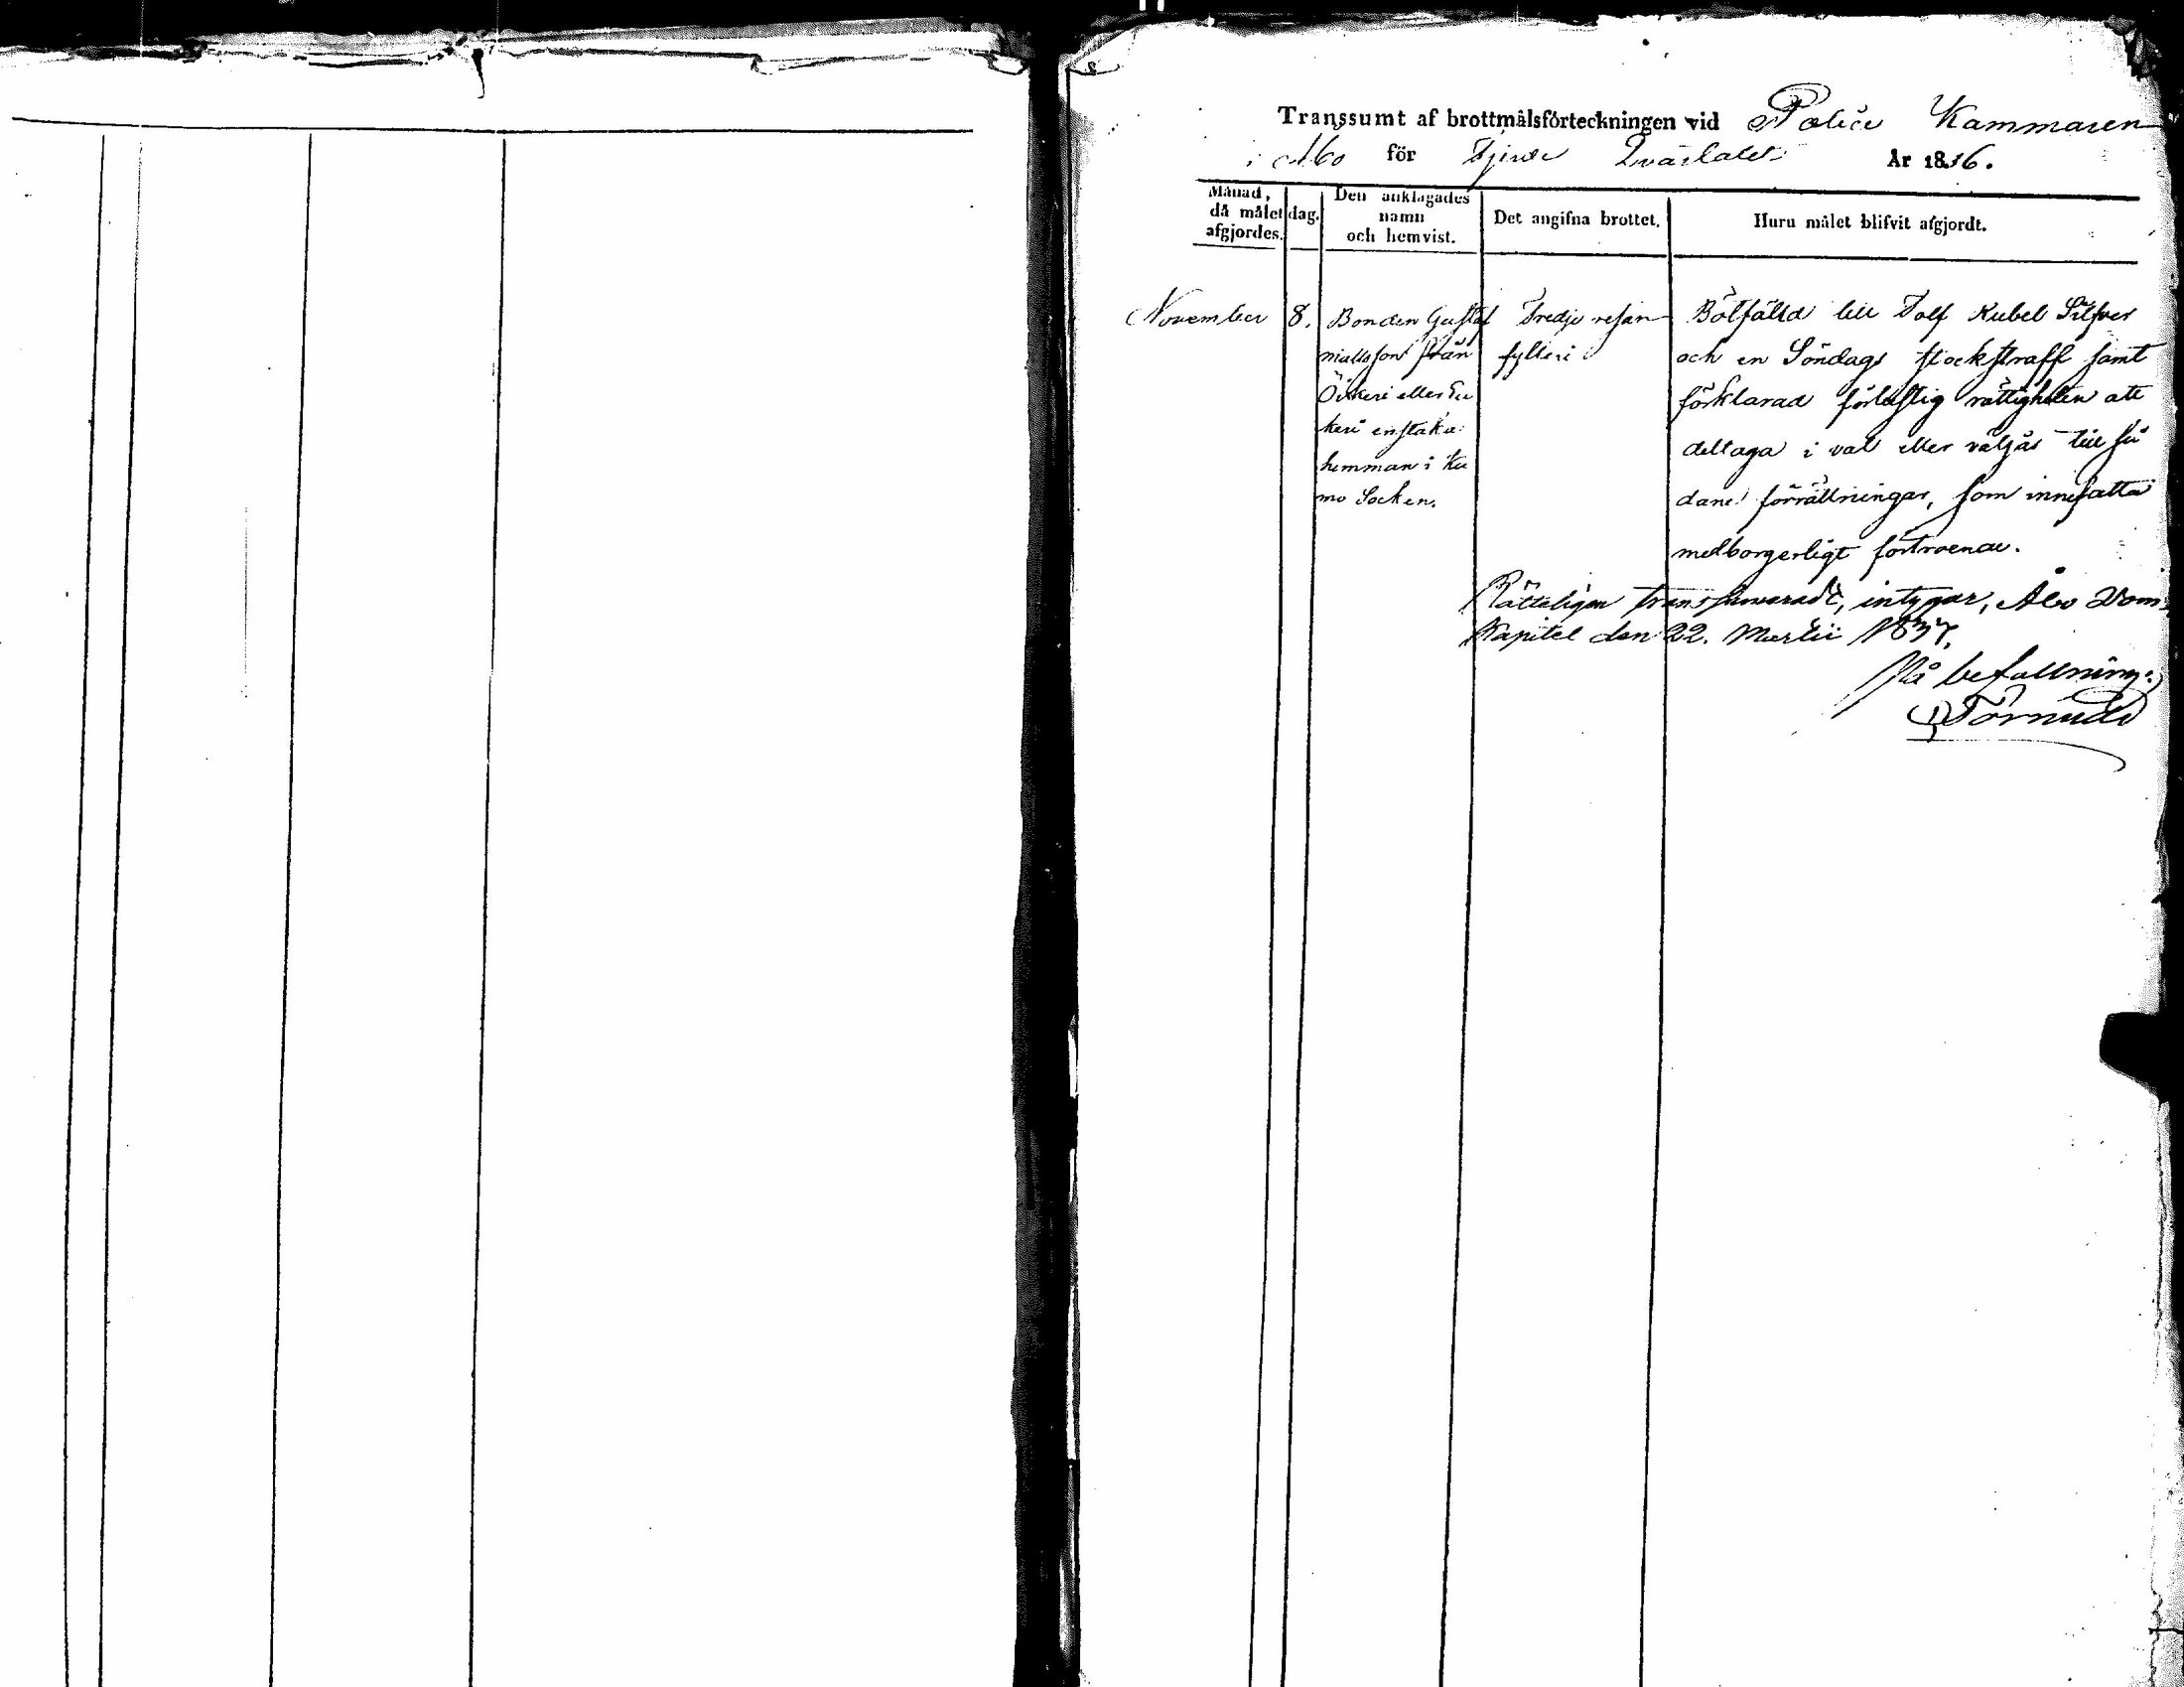 Transsumt af brottmålsförteckningen vid Police Kammaren
i Åbo för Fjerde Qvartalet År 1836.
Månad, då målet afgjordes.
dag.
Den anklagades namn och hemvist.
Det angifna brottet.
Huru målet blifvit afgjordt.
November
8.
Bonden Gustaf
från
eller
keri enstaka
hemman i Ku
mo Socken.
Tredje resan
fylleri
Bötfälld till Tolf Rubel Silfver
och en Söndags stockstraff samt
förklarad förlustig rättigheten att
deltaga i val eller väljas till så
dane förrättningar, som innefatta
medborgerligt förtroende.
Rätteligen transsumeradt, intygar, Åbo Dom-
Kapitel den 22. Martii 1837.
På befallning:
Törnudd